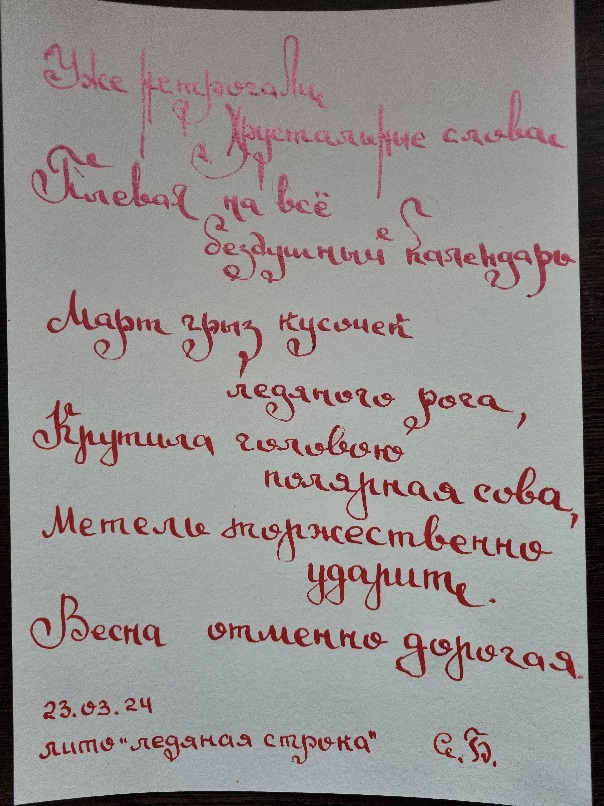 Уже не трогали
Хрустальные слова
Плевая на всё
бездушный календарь
Март грыз кусочек
ледяного рога,
Крутила головою
полярная сова,
Метель торжественно
ударит.
Весна отменно дорогая.
23.03.24
лито "ледяная строка" С.Б.